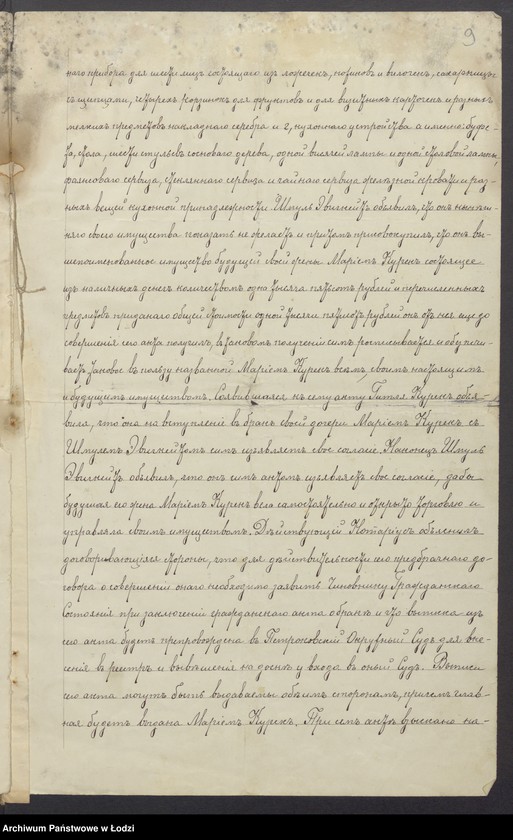 9
наго прибора для шести лицъ состоящаго изъ ложечекъ, ножиковъ и вилочекъ, сахарницы
съ щипцами, четырехъ корзинокъ для фруктовъ и для визитныхъ карточекъ и разныхъ
мелкихъ предметовъ накладнаго серебра и 2, кухоннаго устройства а именно: буфе-
та, стола, шести стульевъ сосноваго дерева, одной висячей лампы и одной столовой лампы,
фаянсоваго сервиза, стекляннаго сервиза и чайнаго сервиза железной кровати и раз-
ныхъ вещей кухонной принадлежности Шмуль Эвигкейтъ объявилъ, что онъ нынѣш-
няго своего имущества показать не желаетъ и притомъ присовокупилъ, что онъ вы-
шепоименованное имущество будущей своей жены Маріемъ Курекъ состоящее
изъ наличныхъ денегъ количествомъ одна тысяча пятьсотъ рублей и перечисленныхъ
предметовъ приданаго общей стоимости одной тысячи пятисотъ рублей онъ отъ нея еще до
совершенія сего акта получилъ, въ таковомъ полученіи симъ росписывается и обезпечи-
ваетъ таковое въ пользу названной Маріемъ Курекъ всемъ своимъ настоящимъ
и будущимъ имуществомъ. Соявившаяся къ сему акту Гитля Курекъ объя-
вила, что она на вступленіе въ бракъ своей дочери Маріемъ Курекъ съ
Шмулемъ Эвигкейтомъ симъ изъявляетъ свое согласіе. Наконецъ Шмуль
Эвигкейтъ объявилъ, что онъ симъ актомъ изъявляетъ свое согласіе, дабы
будущая его жена Маріемъ Курекъ вела самостоятельно и открыто торговлю и
управляла своимъ имуществомъ. Дѣйствующій Нотаріусъ объяснилъ
договаривающимся сторонамъ, что для дѣйствительности сего предбрачнаго до-
говора о совершеніи онаго необходимо заявить Чиновнику Гражданскаго
Состоянія при заключеніи гражданскаго акта о бракѣ и что выпись изъ
сего акта будетъ препровождена въ Петроковскій Окружный Судъ для вне-
сенія въ реестръ и вывѣшенія на доскѣ у входа въ оный Судъ. Выписи
сего акта могутъ быть выдаваемы обѣимъ сторонамъ, причемъ глав-
ная будетъ выдана Маріемъ Курекъ. При семъ актѣ взыскано на-
Archiwum Państwowe w Łodzi